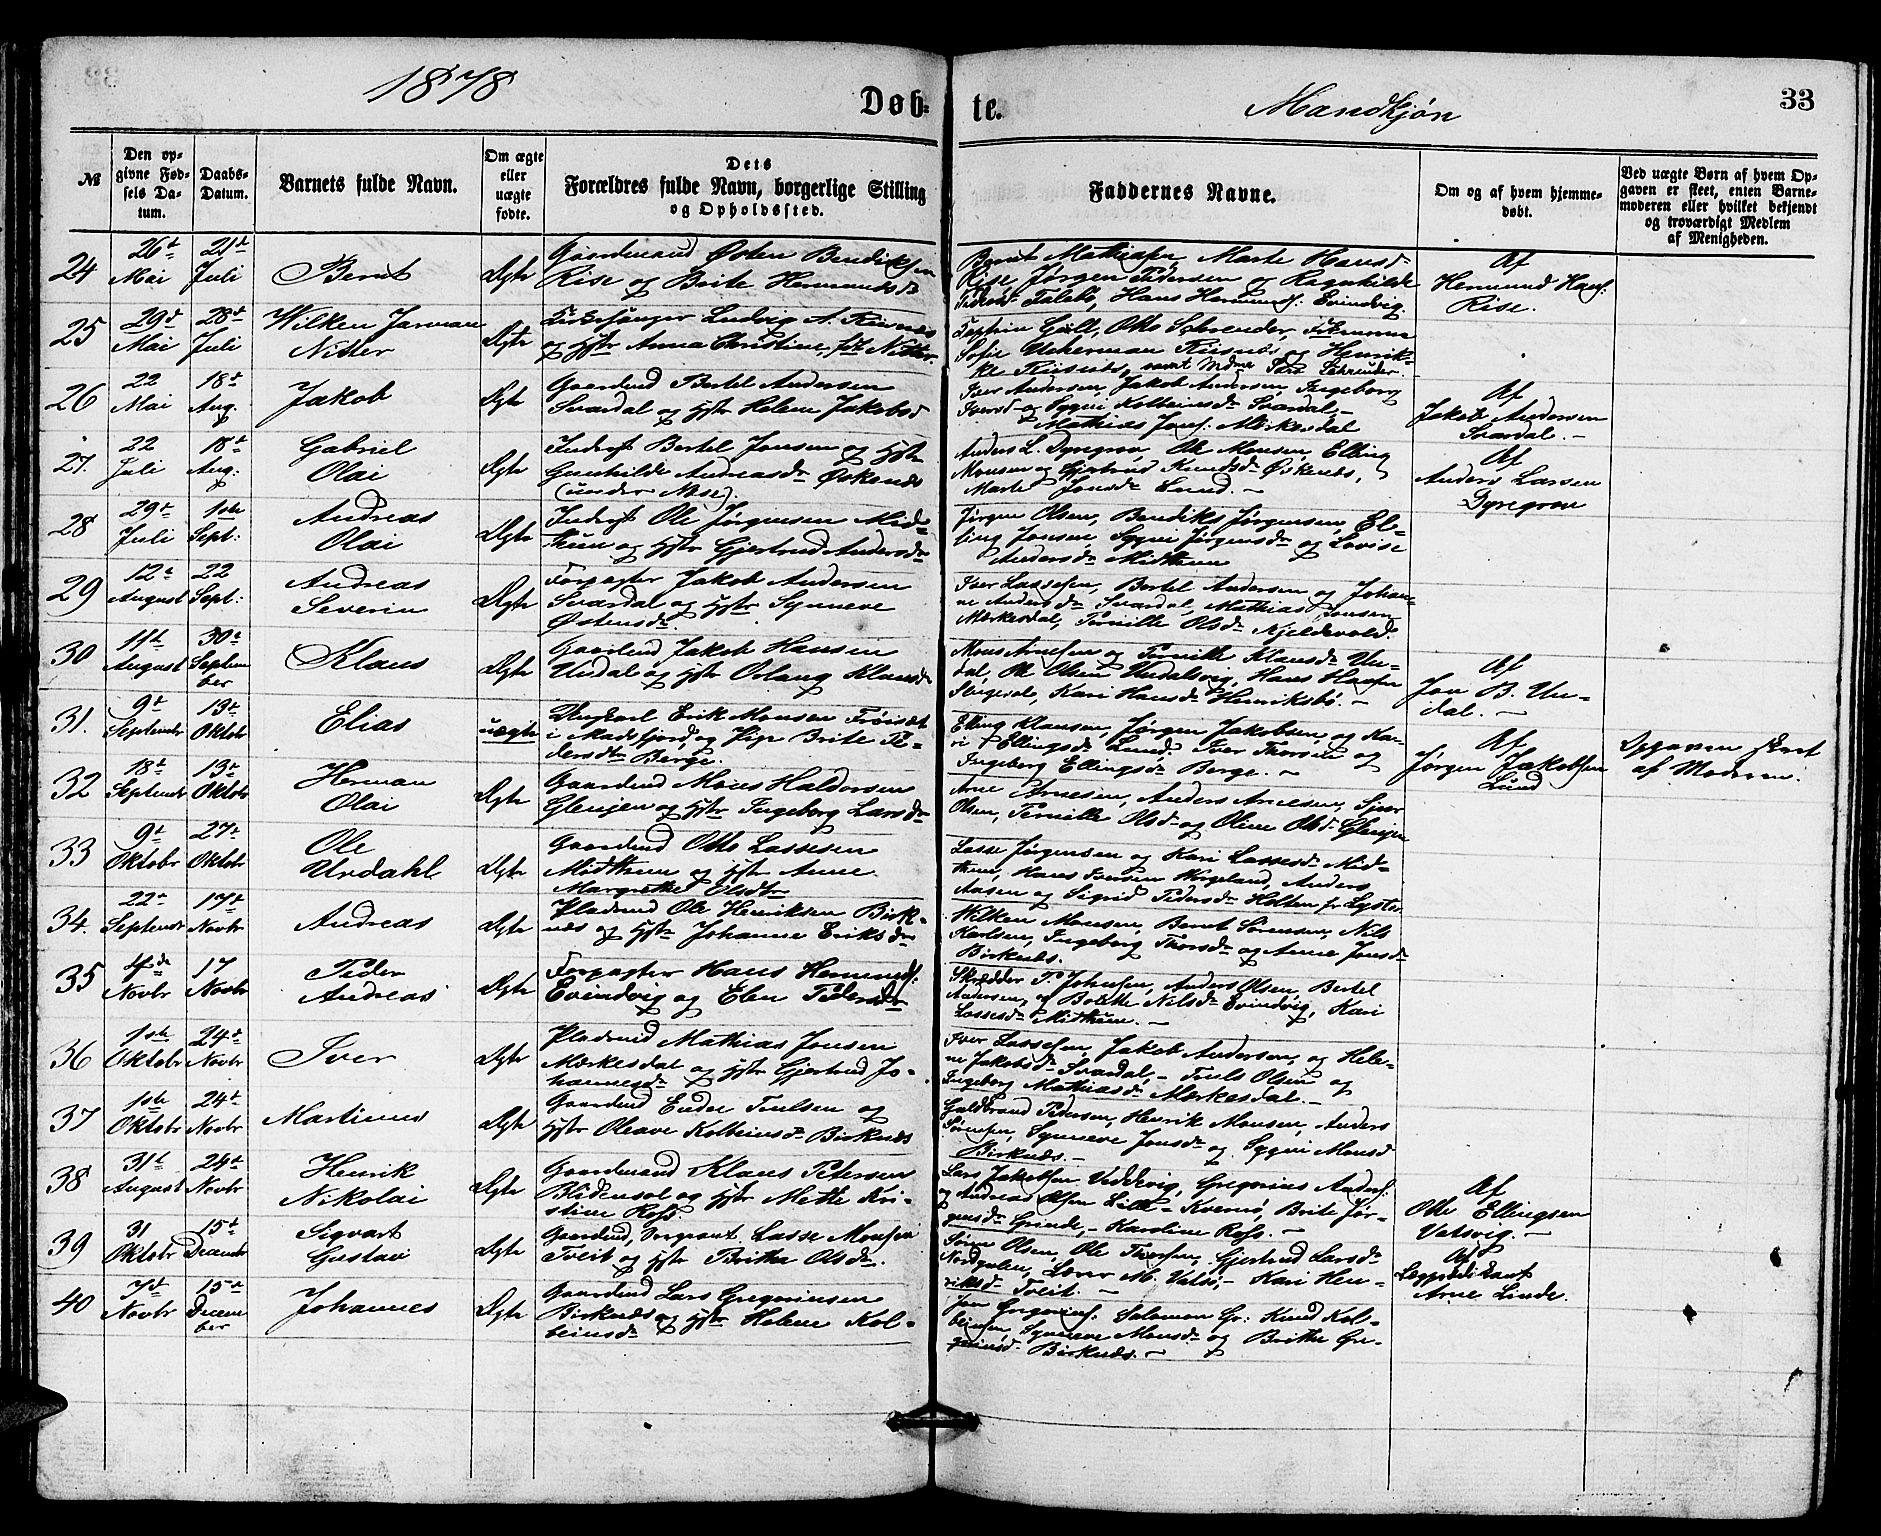 1878
Døb-
te.
Mandkjøn
33
№
Den op-
givne Fød-
sels Da-
tum.
Daabs-
Datum.
Barnets fulde Navn.
Om ægte
eller
uægte
fødte.
Dets
Forældres fulde Navn, borgerlige Stilling
og Opholdssted.
Faddernes Navne.
Om og af hvem hjemme-
døbt.
Ved uægte Børn af hvem Op-
gaven er skeet, enten Barne-
moderen eller hvilket bekjendt
og troværdigt Medlem
af Menigheden.
24
26t
Mai
21t
Juli
Bernt
Ægte
Gaardmand Østen Bendiksen
Rise og Brite Hermundsd
Bernt Mathiasen, Marte Hansd-
Rise, Jørgen Pedersen og Ragnhilde
Hans Evindvig
Af
Hermund Hans:
Rise.
25
29t
Mai
28t
Juli
Wilken Jarman
Nitter
Ægte
Kirkesanger Ludvig A. Risnes
og Hstr Anna Christine, fdt Nitter.
Captein Gill, Otto Schreuder, Frkene
Sofie Uckerman Risnes og Henrik-
ke Risnes, samt Schreuder
26
22
Mai
18t
Aug.
Jakob
Ægte
Gaardmd Bertel Andersen
Svardal og Hstr Helene Jakobsd
Iver Andersen, Jakob Andersen, Ingeborg
Iversd og Sygni Kolbeinsd Svardal,-
Mathias Jons: Mærkesdal
Af
Jakob Andersen
Svardal. -
27.
22
Juli
18t
Aug:
Gabriel
Olai
Ægte
Inderst Bertel Jonsen og Hstr
Gunhilde Andreasd Øskenes
(under Næse).
Anders L. Dyregrov, Ole Monsen, Elling
Monsen og Gjertrud Knudsd Øskenes,
Marte Jonsd Lund. -
Af
Anders Larsen
Dyregrov
28
29t
Juli
1ste
Sept:
Andreas
Olai
Ægte
Inderst Ole Jørgensen Mid-
thun og Hstr Gjertrud Andersd
Jørgen Olsen, Bendiks Jørgensen, El-
ling Jonsen Sygni Jørgensd og Lovise
Andersd Midthun
29
12t
August
22
Sept:
Andreas
Severin
Ægte
Forpagter Jakob Andersen
Svardal og Hstr Synneve
Østensd.
Iver Lassesen, Bertel Andersen og Johan-
ne Andersd Svardal, Mathias Jonsen
Mærkesdal, Pernille Olsd Kjeldevold.
30
11t
August
30t
Septem
ber
Klaus
Ægte
Gaardmd Jakob Hansen
Undal og Hstr Oslaug Klausd
Mons Arnesen og Pernille Klausd Un-
dal, Ole Olsen Undalsvig, Hans Hansen
Kari Hansd Henriksbø. -
Af
Jon B. Un-
dal. -
31.
9t
Septembr
13t
Oktobr
Elias
uægte
Ungkarl Erik Monsen Frøiset
i Masfjord og Pige Brite Pe-
dersdtr Berge.
Elling Klausen, Jørgen Jakobsen og Ka-
ri Ellingsd Lund. Iver Thorsen og
Ingeborg Ellingsd Berge. -
Af
Jørgen Jakobsen
Lund
Opgaven skeet
af Moderen.
32
18t
Septembr
13t
Oktobr
Herman
Olai
Ægte
Gaardmd Mons Haldorsen
Glenjen og Hstr Ingeborg Larsd
Arne Arnesen, Anders Arnesen, Sjur
Olsen, Pernille Olsd og Oline Olsd Glenjen
33
9t
Oktobr
27t
Oktobr
Ole
Urdahl
Ægte
Gaardmd Otto Lassesen
Midthun og Hstr Anne
Margrethe Olsdtr
Lasse Jørgensen og Kari Lassesd Mid-
thun, Hans Iversen Wergeland, Anders
Aasen og Sigrid Pedersd Holten fr Lyster
34.
22t
Septembr
17t
Novbr
Andreas
Ægte
Pladsmd Ole Henriksen Birk-
nes og Hstr Johanne Eriksd
Wilken Monsen, Bernt Sørensen, Nils
Karlsen, Ingeborg Thorsd og Anne Jonsd
Birknes.
35
4de
Novbr
17
Novbr
Peder
Andreas
Ægte
Forpagter Hans Hermunds:
Evindvig og Elen Pedersdtr
Skrædder P. Johnsen, Anders Olsen, Bertel
Andersen, og Bolette Nilsd Evindvig, Kari
Lassesd Midthun. -
36
1ste
Oktobr
24t
Novbr
Iver
Ægte
Pladsmd Mathias Jonsen
Mærkesdal og Hstr Gjertrud Jo-
hannesd
Iver Lassesen, Jakob Andersen, og Hele-
ne Jakobsd Svardal,- Truls Olsen og
Ingeborg Mathiasd Mærkesdal. -
37
1ste
Oktobr
24t
Novbr
Martinus
Ægte
Gaardmd Endre Trulsen og
Hstr Oleave Kolbeinsd Birknes
Guldbrand Pedersen, Henrik Monsen, Anders
Sørensen, Synneve Jonsd og Sygni Monsd
Birknes. -
38
31t
August
24t
Novbr
Henrik
Nikolai
Ægte
Gaardmand Klaus Petersen
Blidensol og Hstr Mette Kri-
stine Ross.
Lars Jakobsen Veddevig, Gregorius Anders:
og Andreas Olsen Lille-Kvernø, Brite Jør-
gensd Grinde,- Karoline Ross. -
Af
Otto Ellingsen
Vatsvig. -
39
31
Oktobr
15t
Decembr
Sigvart
Gustav
Ægte
Gaardmd, Sergeant Lasse Monsen
Tveit og Hstr Britha Olsd.
Søren Olsen, Ole Thorsen, Gjertrud Larsd
Nordgulen, Lærer M. Valsø,- Kari Hen-
riksd Tveit. -
Af
Lægprædikant
Arne Linde.
40
7d
Novbr
15t
Decem
ber
Johannes
Ægte
Gaardmd Lars Gregoriussen
Birknes og Hstr Helene Kol-
beinsd
Jon Gregorius: Salomon Gr: Knud Kol-
beinsen, Synneve Monsd og Brithe Gre-
goriusd Birknes. -